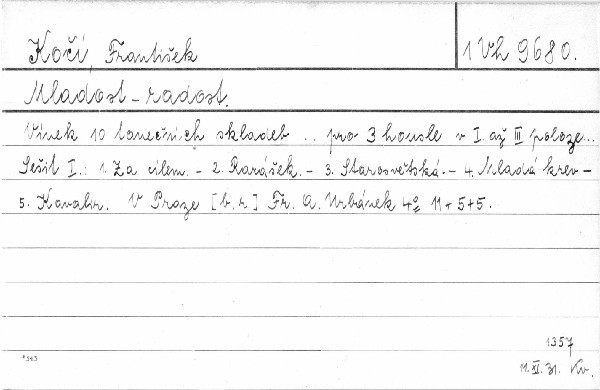 Kočí, František
1 Vh 9680.
Mladost - radost.
Vínek 10 tanečních skladeb .. pro 3 housle v I. až III poloze...
Sešit I.: 1. Za cílem. - 2. Rarášek. - 3. Starosvětská. - 4. Mladá krev -
5. Kavalír. V Praze [b.r.] Fr. A. Urbánek 4° 11 + 5 + 5.
1357
11. XI. 31. Kv.